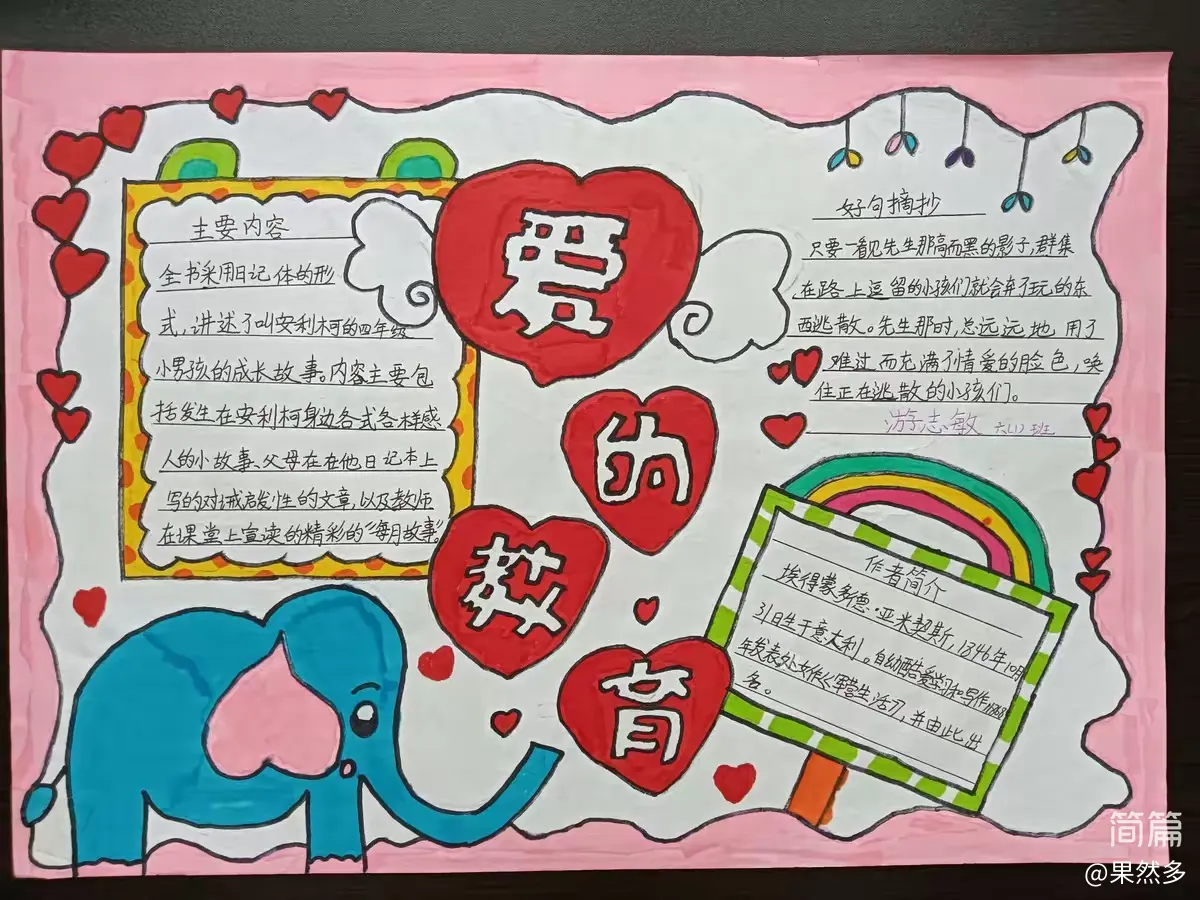 主要内容
全书采用日记体的形
式，讲述了叫安利柯的四年级
小男孩的成长故事。内容主要包
括发生在安利柯身边各式各样感
人的小故事、父母在在他日记本上
写的对诫启发性的文章，以及教师
在课堂上宣读的精彩的“每月故事”。
爱
的
教
育
好句摘抄
只要一看见先生那高而黑的影子，群集
在路上逗留的小孩们就会弃了玩的东
西逃散。先生那时，总远远地用了
难过而充满了情爱的脸色，唤
住正在逃散的小孩们。
游志敏 六(1)班
作者简介
埃得蒙多德·亚米契斯，1346年10月
31日生于意大利。自幼酷爱学习和写作1868
年发表处女作《军营生活》，并由此出
名。
简篇
@果然多